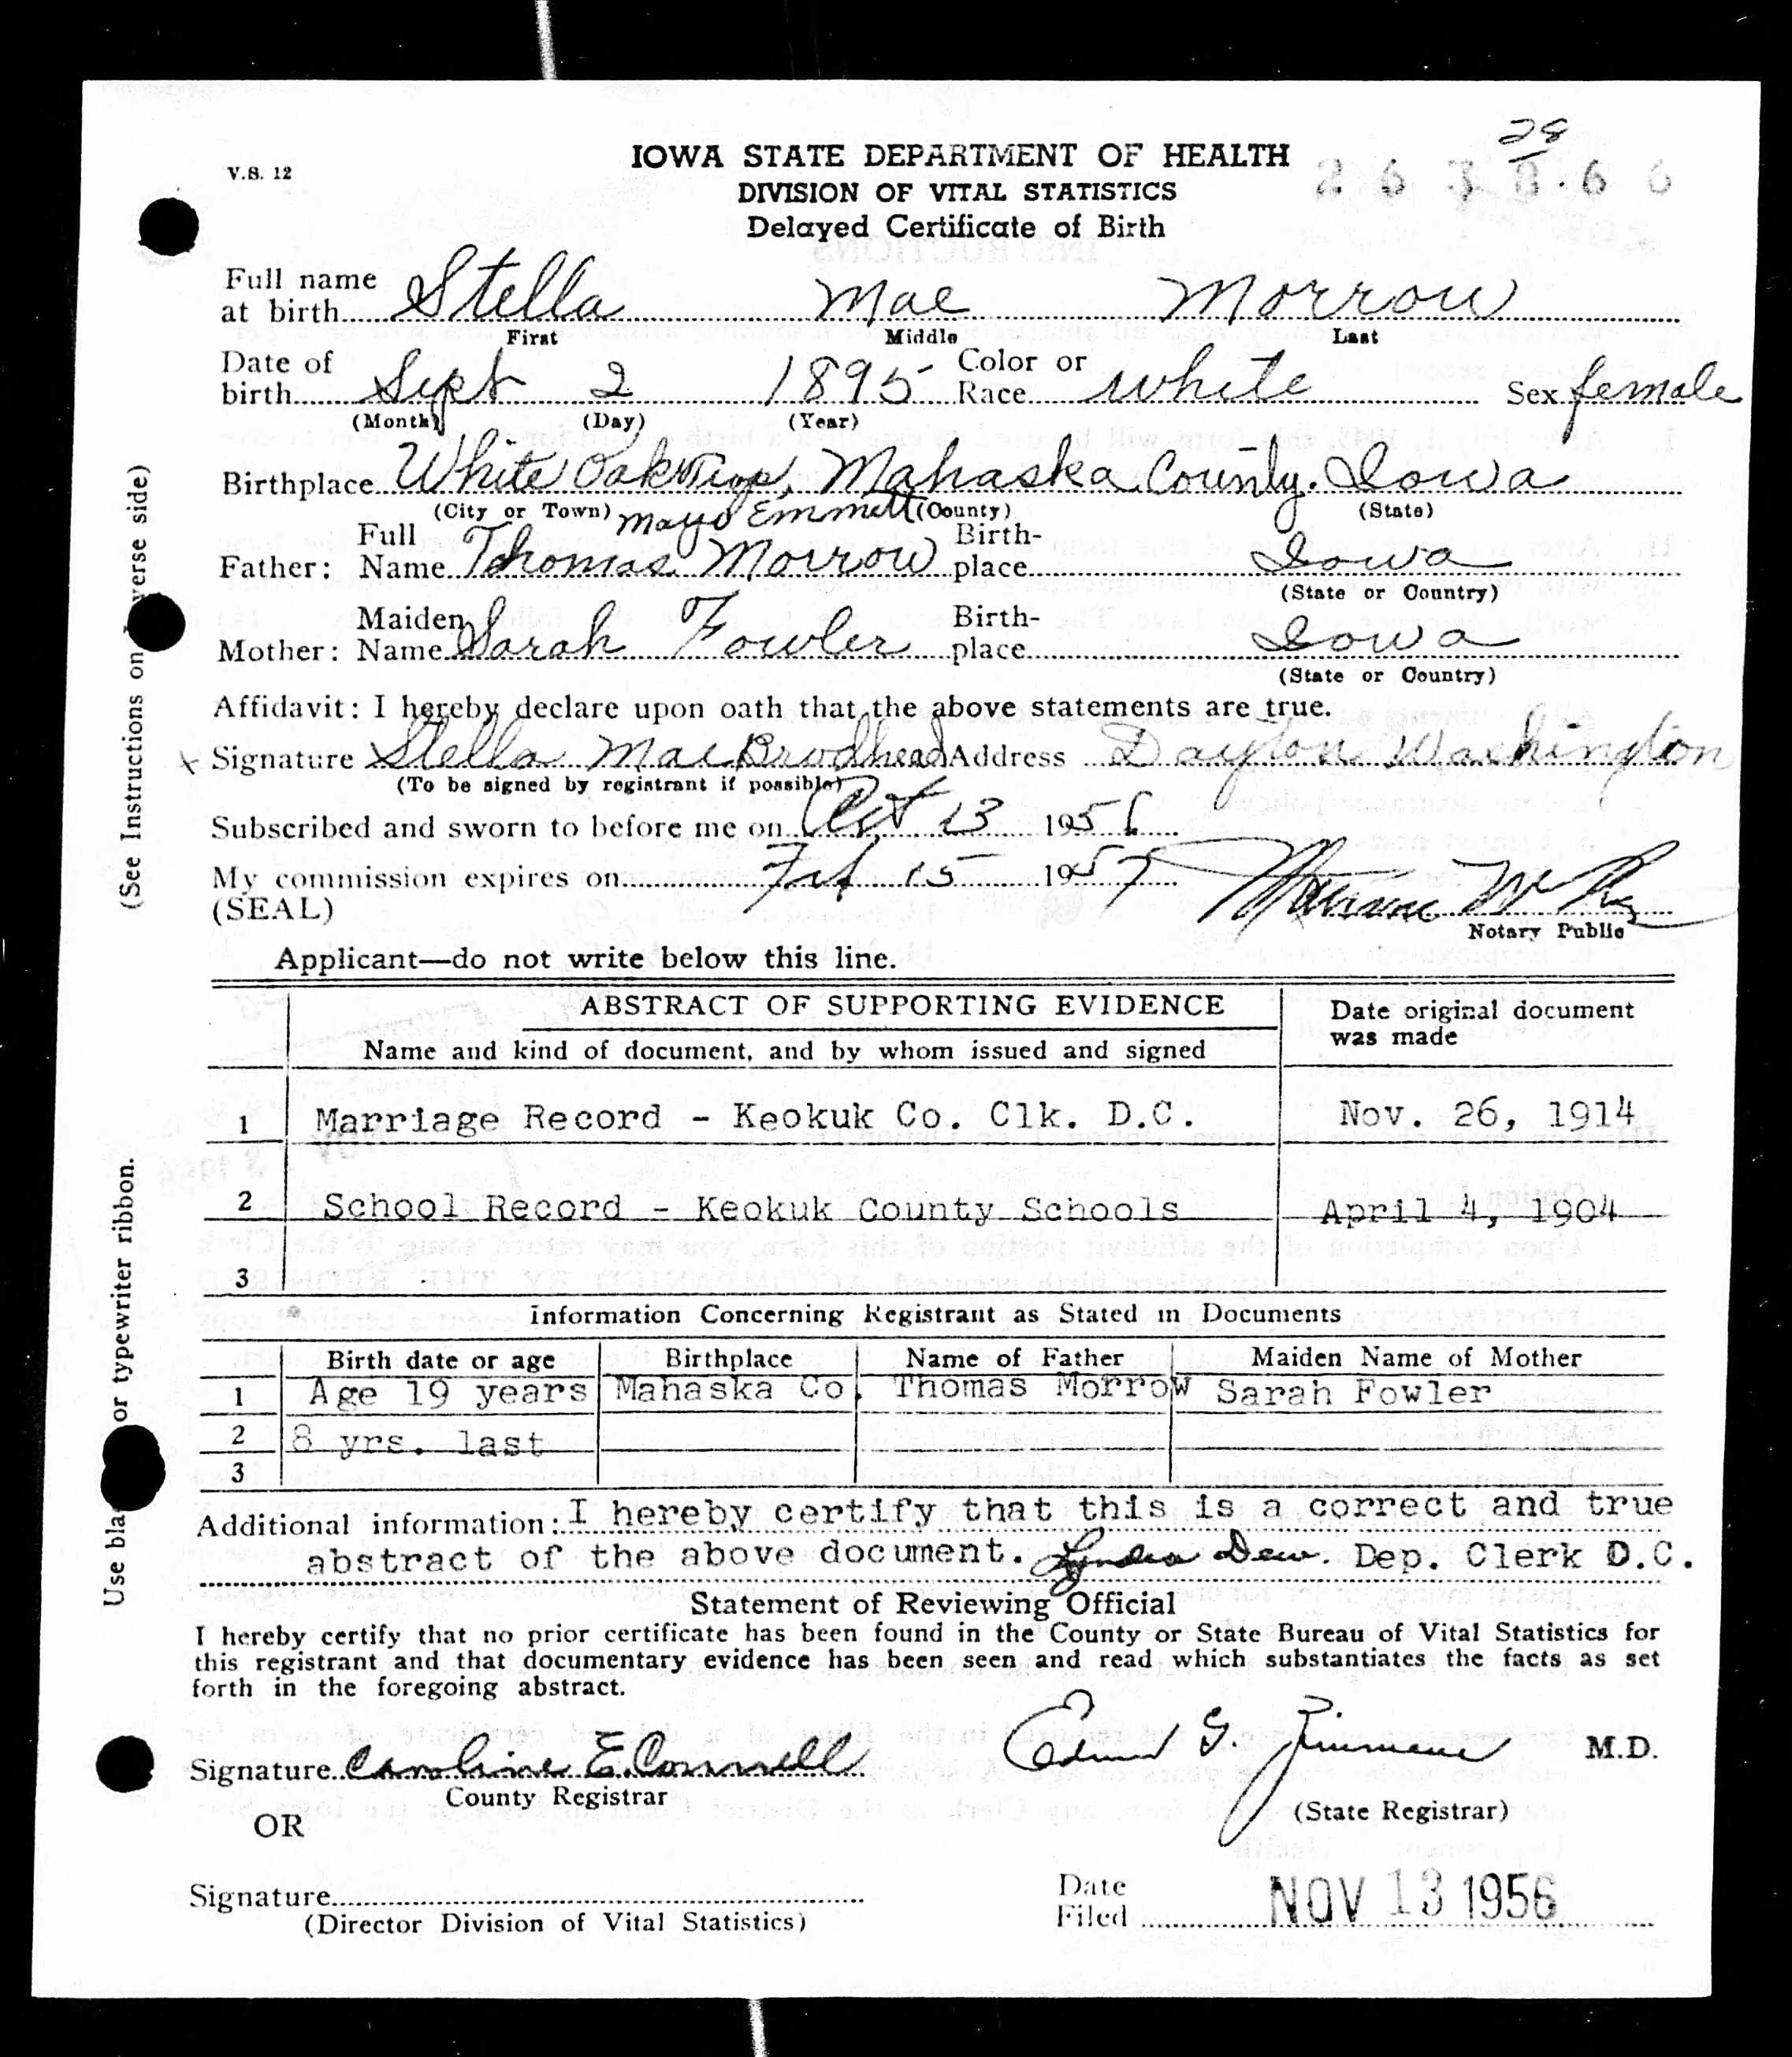 28
V.S. 12
IOWA STATE DEPARTMENT OF HEALTH
DIVISION OF VITAL STATISTICS
Delayed Certificate of Birth
Full name
at birth Stella Mae Morrow
First Middle Last
Date of Color or
birth Sept 2 1895 Race white Sex female
(Month) (Day) (Year)
Birthplace White Oak Twp, Mahaska County. Iowa
(City or Town) (County) (State)
Mayo Emmett
Full Birth-
Father: Name Thomas Morrow place Iowa
(State or Country)
Maiden Birth-
Mother: Name Sarah Fowler place Iowa
(State or Country)
Affidavit: I hereby declare upon oath that the above statements are true.
x Signature Stella Mae Brodhead Address Dayton Washington
(To be signed by registrant if possible)
Subscribed and sworn to before me on Oct 13 1956
My commission expires on Feb 15 1957
(SEAL)
Notary Public
Applicant—do not write below this line.
(See Instructions on verse side)
Use bla or typewriter ribbon.
ABSTRACT OF SUPPORTING EVIDENCE Date original document
Name and kind of document, and by whom issued and signed was made
1 Marriage Record - Keokuk Co. Clk. D.C. Nov. 26, 1914
2 School Record - Keokuk County Schools April 4, 1904
3
Information Concerning Registrant as Stated in Documents
Birth date or age Birthplace Name of Father Maiden Name of Mother
1 Age 19 years Mahaska Co. Thomas Morrow Sarah Fowler
2 8 yrs. last
3
Additional information: I hereby certify that this is a correct and true
abstract of the above document. Dep. Clerk D.C.
Statement of Reviewing Official
I hereby certify that no prior certificate has been found in the County or State Bureau of Vital Statistics for
this registrant and that documentary evidence has been seen and read which substantiates the facts as set
forth in the foregoing abstract.
Signature Caroline E. Connell Edmund G. Zimmerer M.D.
County Registrar (State Registrar)
OR
Signature
(Director Division of Vital Statistics)
Date
Filed NOV 13 1956